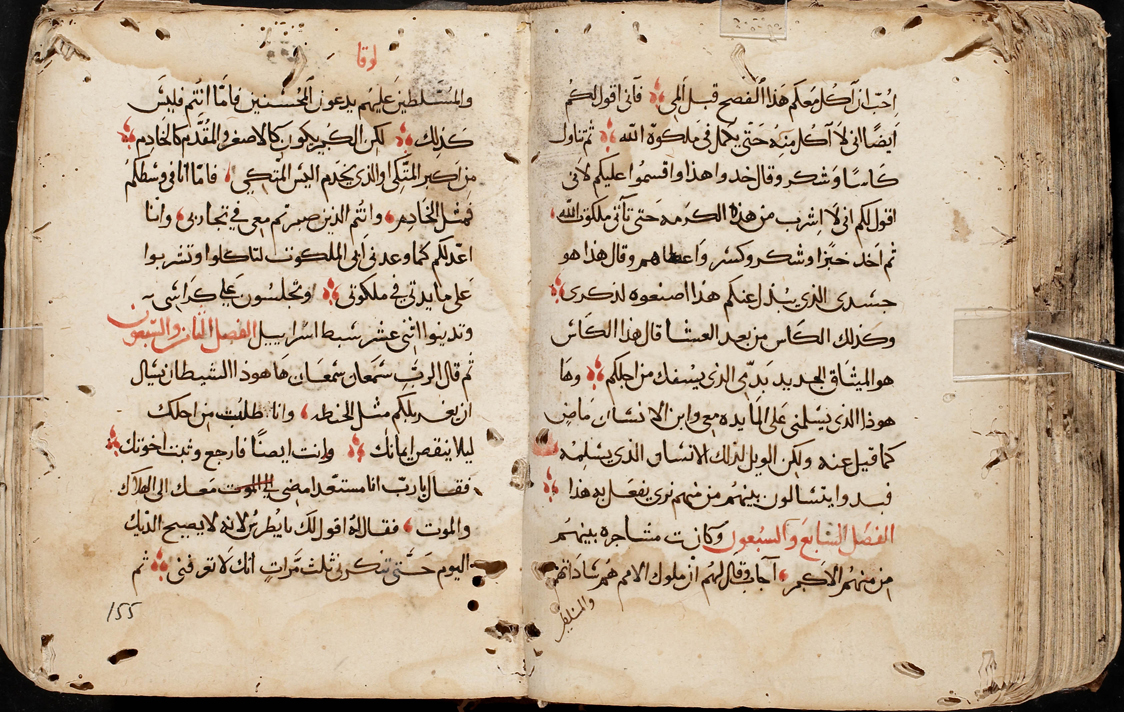 احب ان آكل معكم هذا الفصح قبل المي فاني اقول لكم
ايضًا اني لا آكل منه حتى يكمل في ملكوة الله ثم تناول
كاسًا وشكر وقال خدوا هذا واقسموا عليكم لاني
اقول لكم اني لا اشرب من هذه الكرمه حتى تاتي ملكوت الله
ثم اخد خبزا وشكر وكسر واعطاهم وقال هذا هو
جسدي الذي يبذل عنكم هذا اصنعوه لذكري
وكذلك الكاس من بعد العشا قال هذا الكاس
هو الميثاق الجديد بدمي الذي يسفك من اجلكم وها
هوذا الذي يسلمني على المايده معي وابن الانسان ماض
كما قيل عنه ولكن الويل لذلك الانسان الذي يسلمه
فبدوا يتسالون بينهم من منهم تري يفعل به هذا
الفصل السابع والسبعون وكانت مشاجره بينهم
من منهم الاكبر اجاب قال لهم ان ملوك الامم هم ساداتهم
والمتسلطين
لوقا
والمتسلطين عليهم يدعون المحسنين فاما انتم فليس
كذلك لكن الكبير يكون كالاصغر والمقدم كالخادم
من اكبر المتكي او الذي يخدم اليس المتكي فاما انا في وسطكم
فمثل الخادم وانتم الذين صبرتم معي في تجاربي وانا
اعدلكم كما وعدني ابي الملكوت لتاكلوا وتشربوا
على مايدتي في ملكوتي وتجلسون علي كراسي
وتدينوا اثني عشر سبط اسراييل الفصل الثامن والسبعون
ثم قال الرب سمعان سمعان ها هوذا الشيطان يسال
ان يغربلكم مثل الحنطه وانا طلبت من اجلك
ليلا ينقص ايمانك وانت ايضًا فارجع وثبت اخوتك
فقال يا رب انا مستعد امضي معك الي الهلاك
والموت فقال له اقول لك يا بطرس لانه لا يصيح الديك
اليوم حتى تنكرني ثلث مرات انك لا تعرفني ثم
155